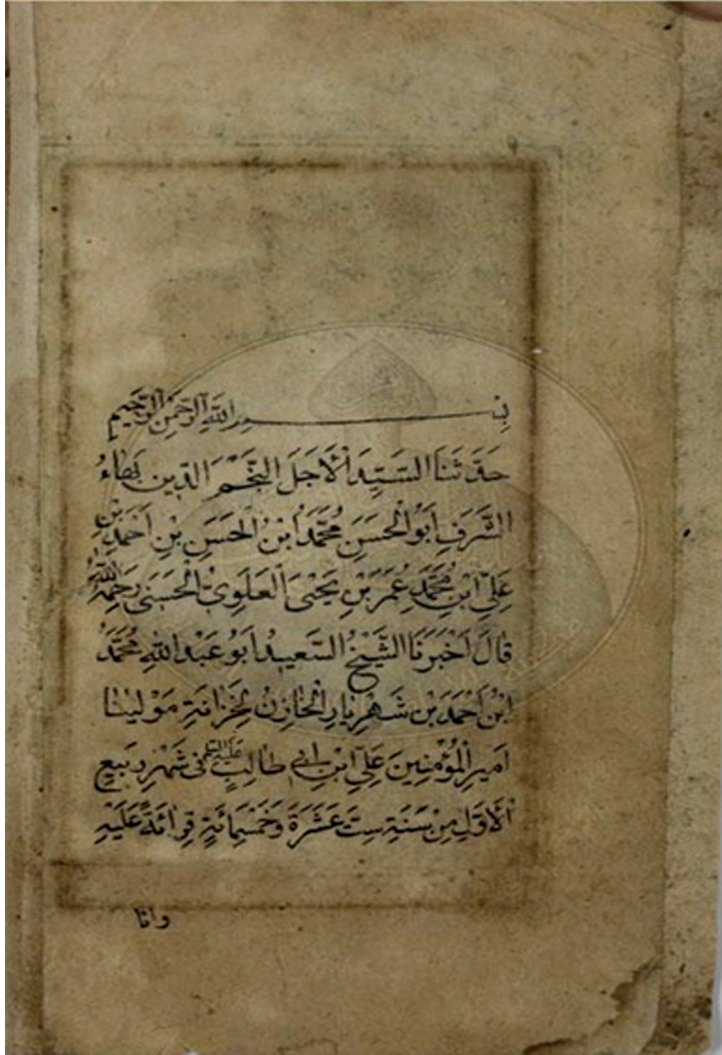 بِسْمِ اللهِ الرَّحْمٰنِ الرَّحِيمِ
حَدَّثَنَا السَّيِّدُ الْأَجَلُ النَّجْمُ الدِّينِ بَهَاءُ
الشَّرَفِ أَبُو الْحَسَنِ مُحَمَّدُ ابْنُ الْحَسَنِ بْنِ أَحْمَدَ بْنِ
عَلِيِّ ابْنِ مُحَمَّدِ عُمَرَ بْنِ يَحْيَى الْعَلَوِيُّ الْحَسَنِي رَحِمَهُ اللهُ
قَالَ أَخْبَرَنَا الشَّيْخُ السَّعِيدُ أَبُو عَبْدِ اللهِ مُحَمَّدُ
ابْنُ أَحْمَدَ بْنِ شَهْرِيَارِ الْخَازِنُ لِخَزَانَةِ مَوْلٰينَا
أَمِيرِ الْمُؤْمِنِينَ عَلِيِّ ابْنِ أَبِي طَالِبٍ عليه السلم فِي شَهْرِ رَبِيعِ
الْأَوَّلِ مِنْ سَنَةِ سِتَّ عَشَرَةَ وَخَمْسِمِائَةٍ قِرَائَةً عَلَيْهِ
وانا